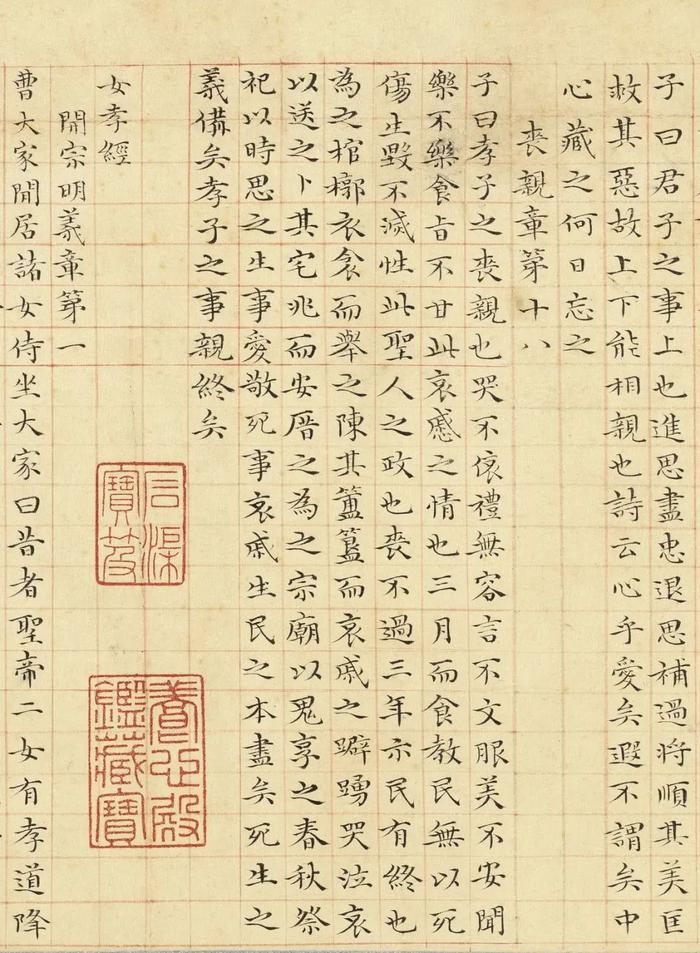 子曰君子之事上也進思盡忠退思補過將順其美匡
救其惡故上下能相親也詩云心乎愛矣遐不謂矣中
心藏之何日忘之
喪親章第十八
子曰孝子之喪親也哭不偯禮無容言不文服美不安聞
樂不樂食旨不甘此哀慼之情也三月而食教民無以死
傷生毀不滅性此聖人之政也喪不過三年示民有終也
為之棺槨衣衾而舉之陳其簠簋而哀戚之躃踴哭泣哀
以送之卜其宅兆而安厝之為之宗廟以鬼享之春秋祭
祀以時思之生事愛敬死事哀戚生民之本盡矣死生之
義備矣孝子之事親終矣
石渠寶笈
養心殿鑑藏寶
女孝經
開宗明義章第一
曹大家閒居諸女侍坐大家曰昔者聖帝二女有孝道降